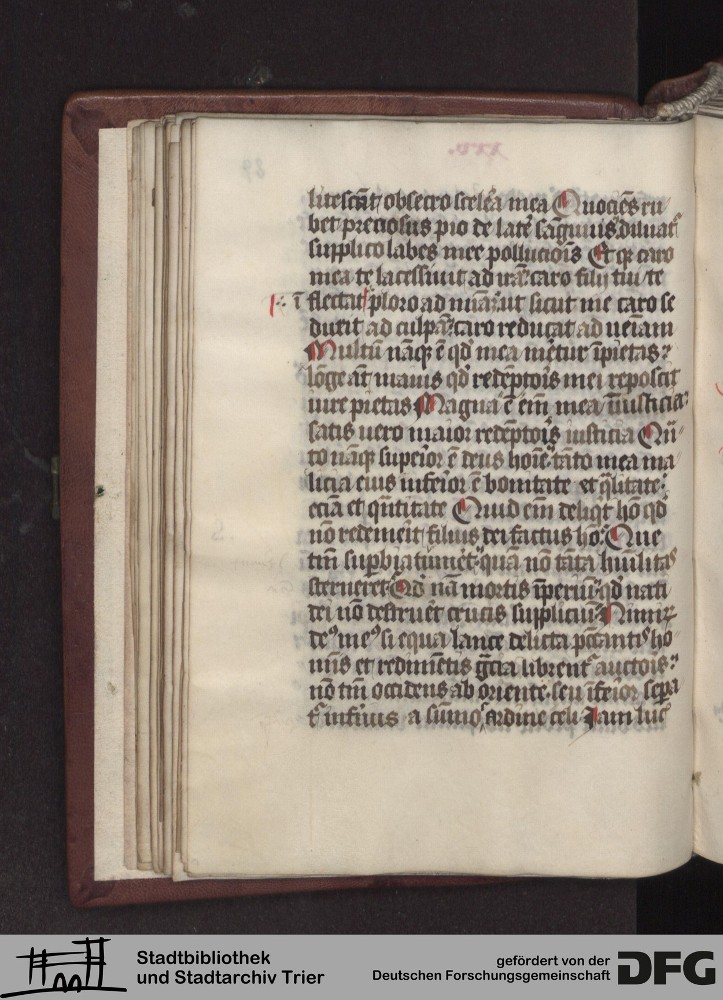 xxv.
litescāt obsecro scelera mea Quociēs ru
bet preciosus pio de late sanguinis diluat
supplico labes mee pollucionis Et quia caro
mea te lacessiuit ad irā: caro filij tui te
ī flectat ploro ad miām: ut sicut me caro se
duxit ad culpā: caro reducat ad ueniam
Multū nāque ē qd mea meretur īpietas:
lōge aūt maius qd redēptoris mei reposcit
iure pietas Magna ē enī mea iniusticia:
satis uero maior redēptoris iusticia Quā
to nāque superior ē deus hoīe: tāto mea ma
licia eius inferior ē bonitate et qualitate:
eciā et quātitate Quid enī deliqt hō qd
nō redemerit filius dei factus hō: Que
tm̄ supbia tumet: quā nō tāta humilitas
sterneret Qd nā mortis īperiū: qd nati
dei nō destruet crucis suppliciū: Nimirum
deus meus si equa lance delicta peccantis ho
minis et redimētis gracia librentur auctoris:
nō tm̄ occidens ab oriente seu īferior sepa
tur infirmus a summo cardine celi Jam lux
Stadtbibliothek
und Stadtarchiv Trier
gefördert von der
Deutschen Forschungsgemeinschaft
DFG